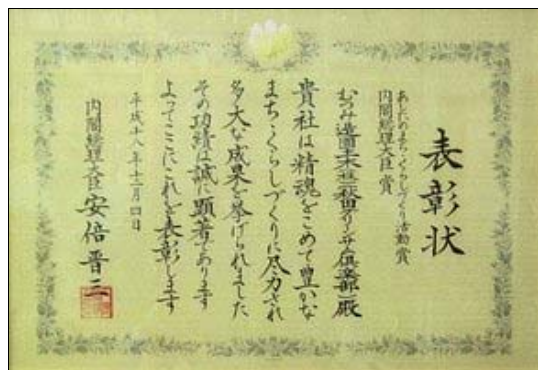 表彰状
あしたのまち・くらしづくり活動賞
内閣総理大臣賞
むつみ造園土木(株) 俱楽部 殿
貴社は精魂をこめて豊かな
まち・くらしづくりに尽力され
多大な成果を挙げられました
その功績は誠に顕著であります
よってここにこれを表彰します
平成十八年十一月四日
内閣総理大臣 安倍晋三